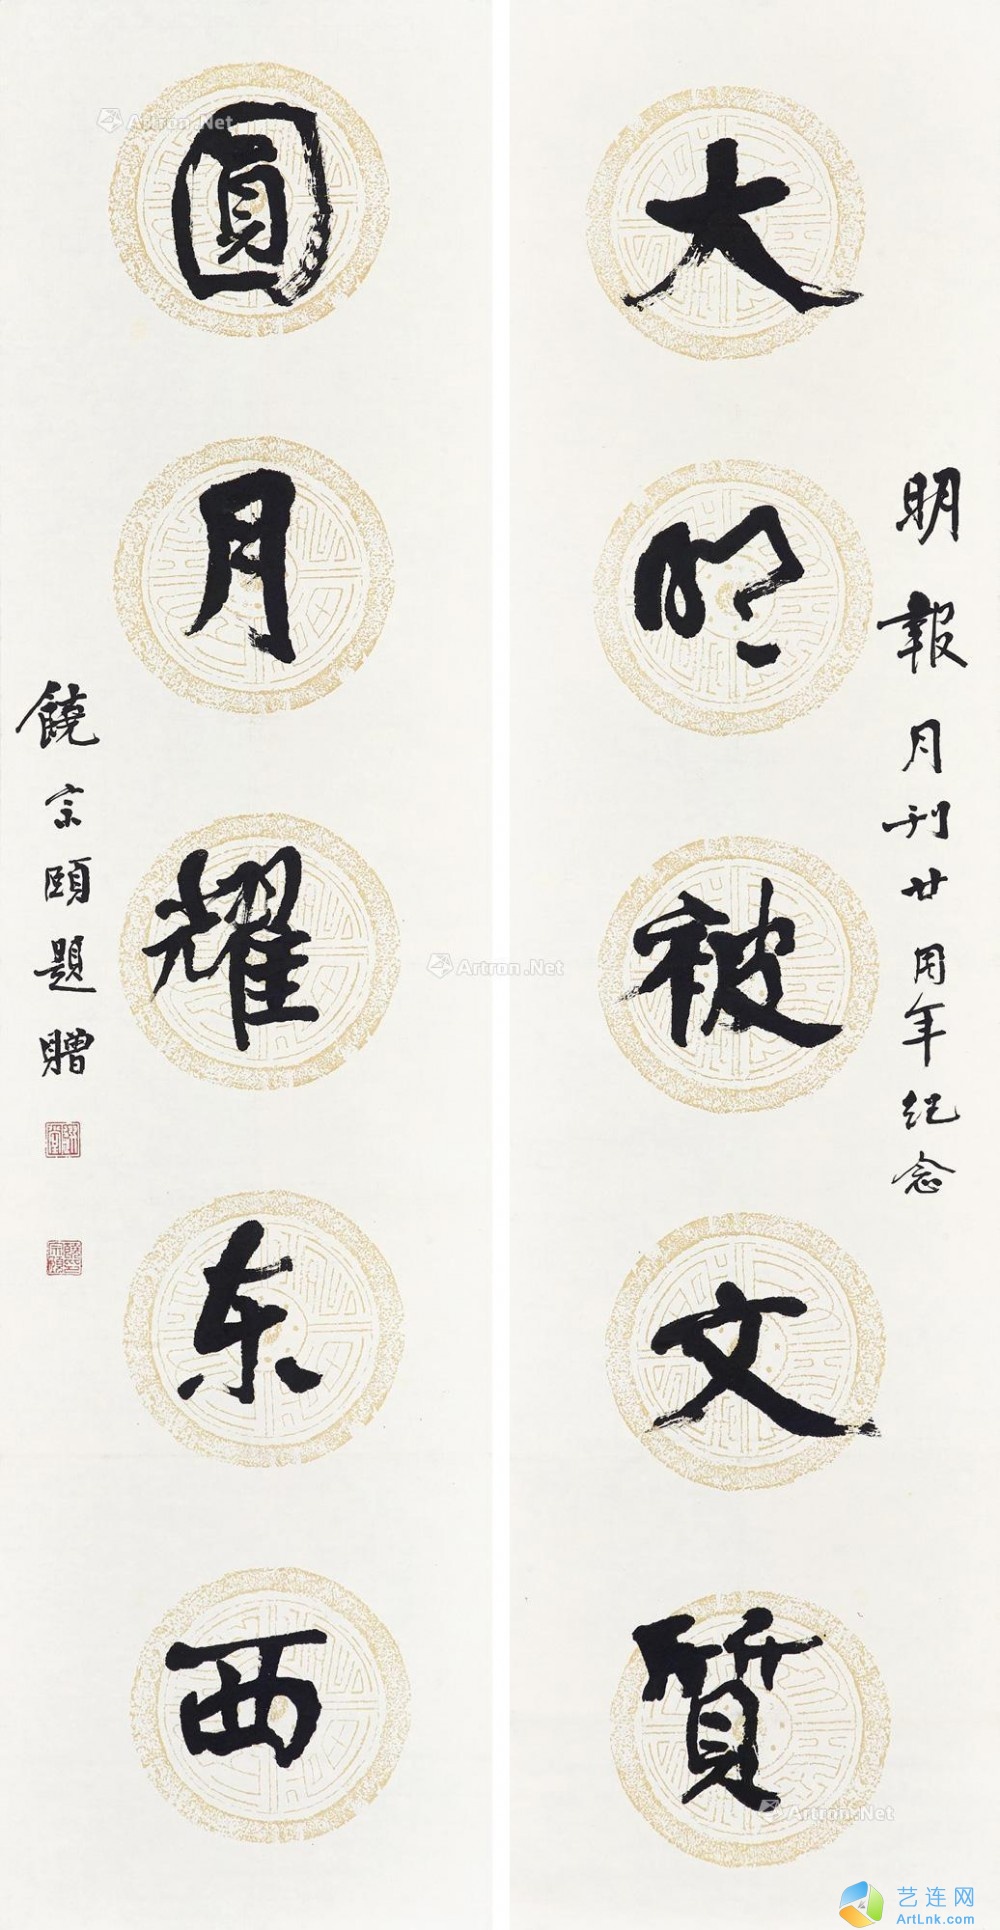 明報月刊廿周年纪念
大明被文质
圓月耀东西
饒宗頤題贈
Artron.Net
Artron.Net
Artron.Net
艺连网
ArtLnk.com